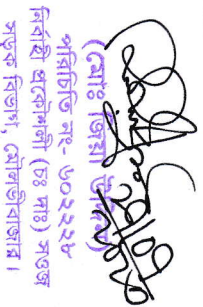 (মোঃ জিয়া উদ্দিন)
পরিচিতি নং- ৬০২২২৮
নির্বাহী প্রকৌশলী (চঃ দাঃ) সওজ
সড়ক বিভাগ, মৌলভীবাজার।